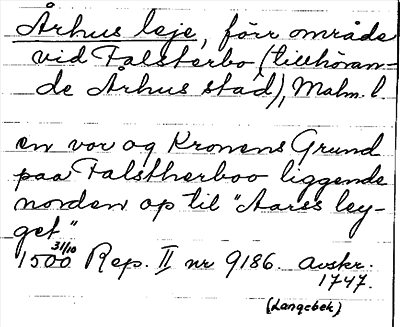 Århus leje, förr område
vid Falsterbo (tillhöran-
de Århus stad), Malm. l
en vor og Kronens Grund
paa Falstherboo liggende
norden op til "Aares ley-
get"
1500 31/10 Rep. II nr 9186. avskr.
1747.
(Langebek)